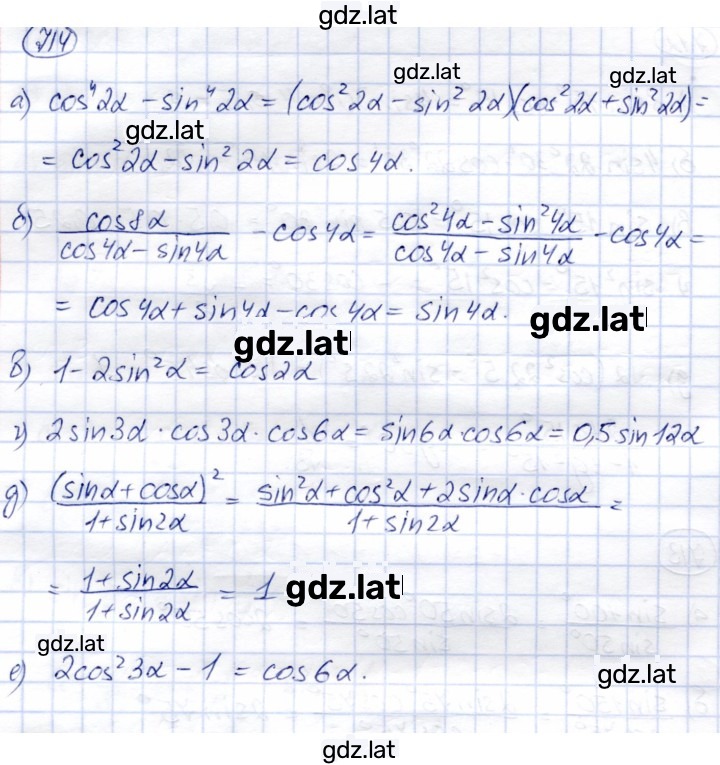 gdz.lat
714
gdz.lat gdz.lat
а) cos⁴2α − sin⁴2α = (cos²2α − sin²2α)(cos²2α + sin²2α) =
gdz.lat
= cos²2α − sin²2α = cos4α.
б) cos8α / (cos4α − sin4α) − cos4α = (cos²4α − sin²4α) / (cos4α − sin4α) − cos4α =
= cos4α + sin4α − cos4α = sin4α.
gdz.lat
gdz.lat
в) 1 − 2sin²α = cos2α
г) 2sin3α · cos3α · cos6α = sin6α·cos6α = 0,5sin12α
д) (sinα + cosα)² / (1 + sin2α) = (sin²α + cos²α + 2sinα·cosα) / (1 + sin2α) =
= (1 + sin2α) / (1 + sin2α) = 1
gdz.lat
gdz.lat
е) 2cos²3α − 1 = cos6α.
gdz.lat
gdz.lat